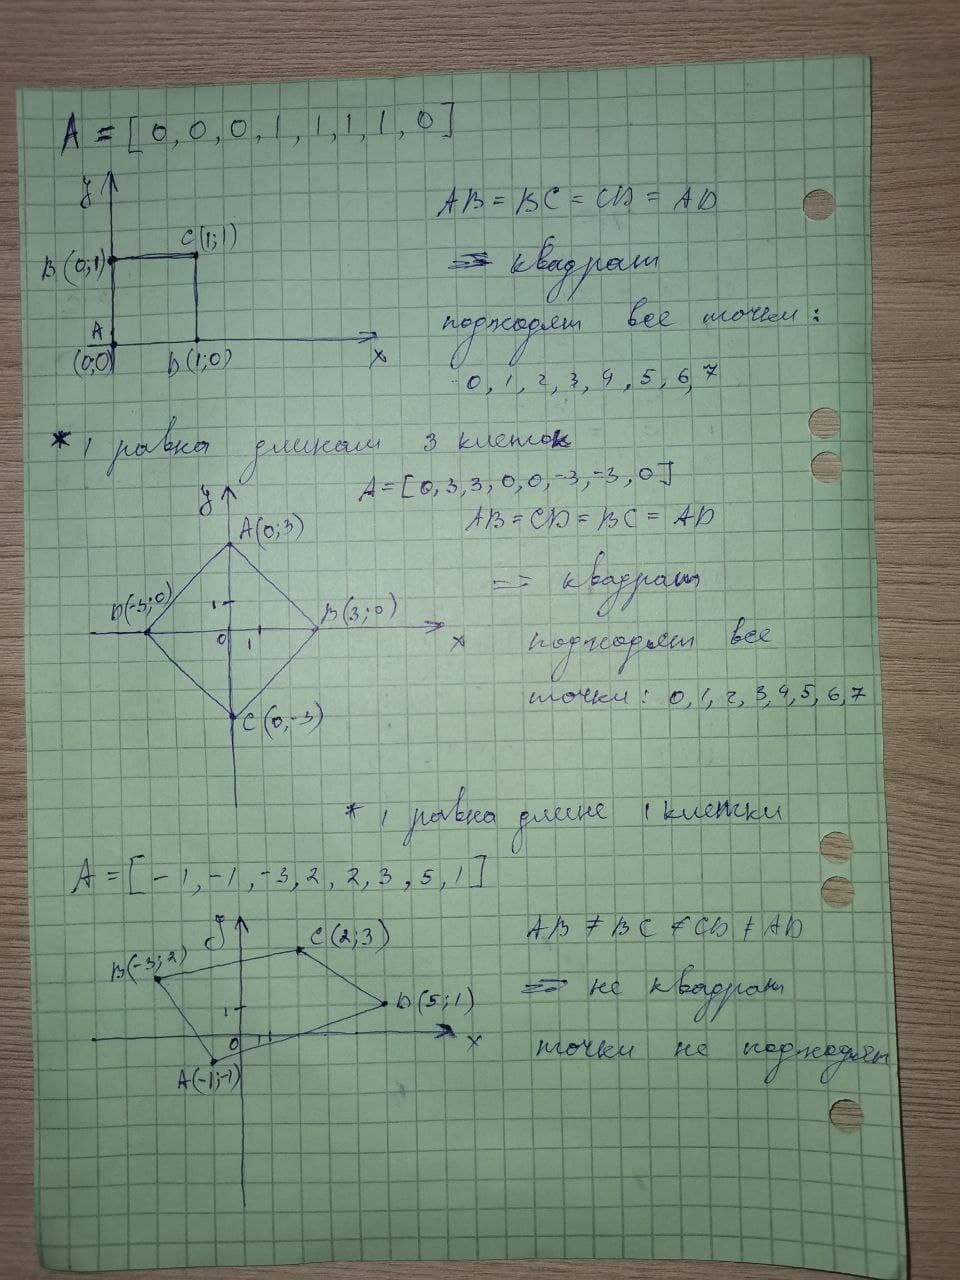 A = [0, 0, 0, 1, 1, 1, 1, 0]
y
B(0;1)
C(1;1)
A
(0;0)
D(1;0)
x
AB = BC = CD = AD
=> квадрат
подходят все точки:
0, 1, 2, 3, 4, 5, 6, 7
* 1 равна длинам 3 клеток
A = [0, 3, 3, 0, 0, -3, -3, 0]
y
A(0;3)
D(-3;0)
1
B(3;0)
0
1
x
C(0,-3)
AB = CD = BC = AD
=> квадрат
подходят все
точки: 0, 1, 2, 3, 4, 5, 6, 7
* 1 равна длине 1 клетки
A = [-1, -1, -3, 2, 2, 3, 5, 1]
y
C(2;3)
B(-3;2)
D(5;1)
1
0
1
x
A(-1;-1)
AB ≠ BC ≠ CD ≠ AD
=> не квадрат
точки не подходят